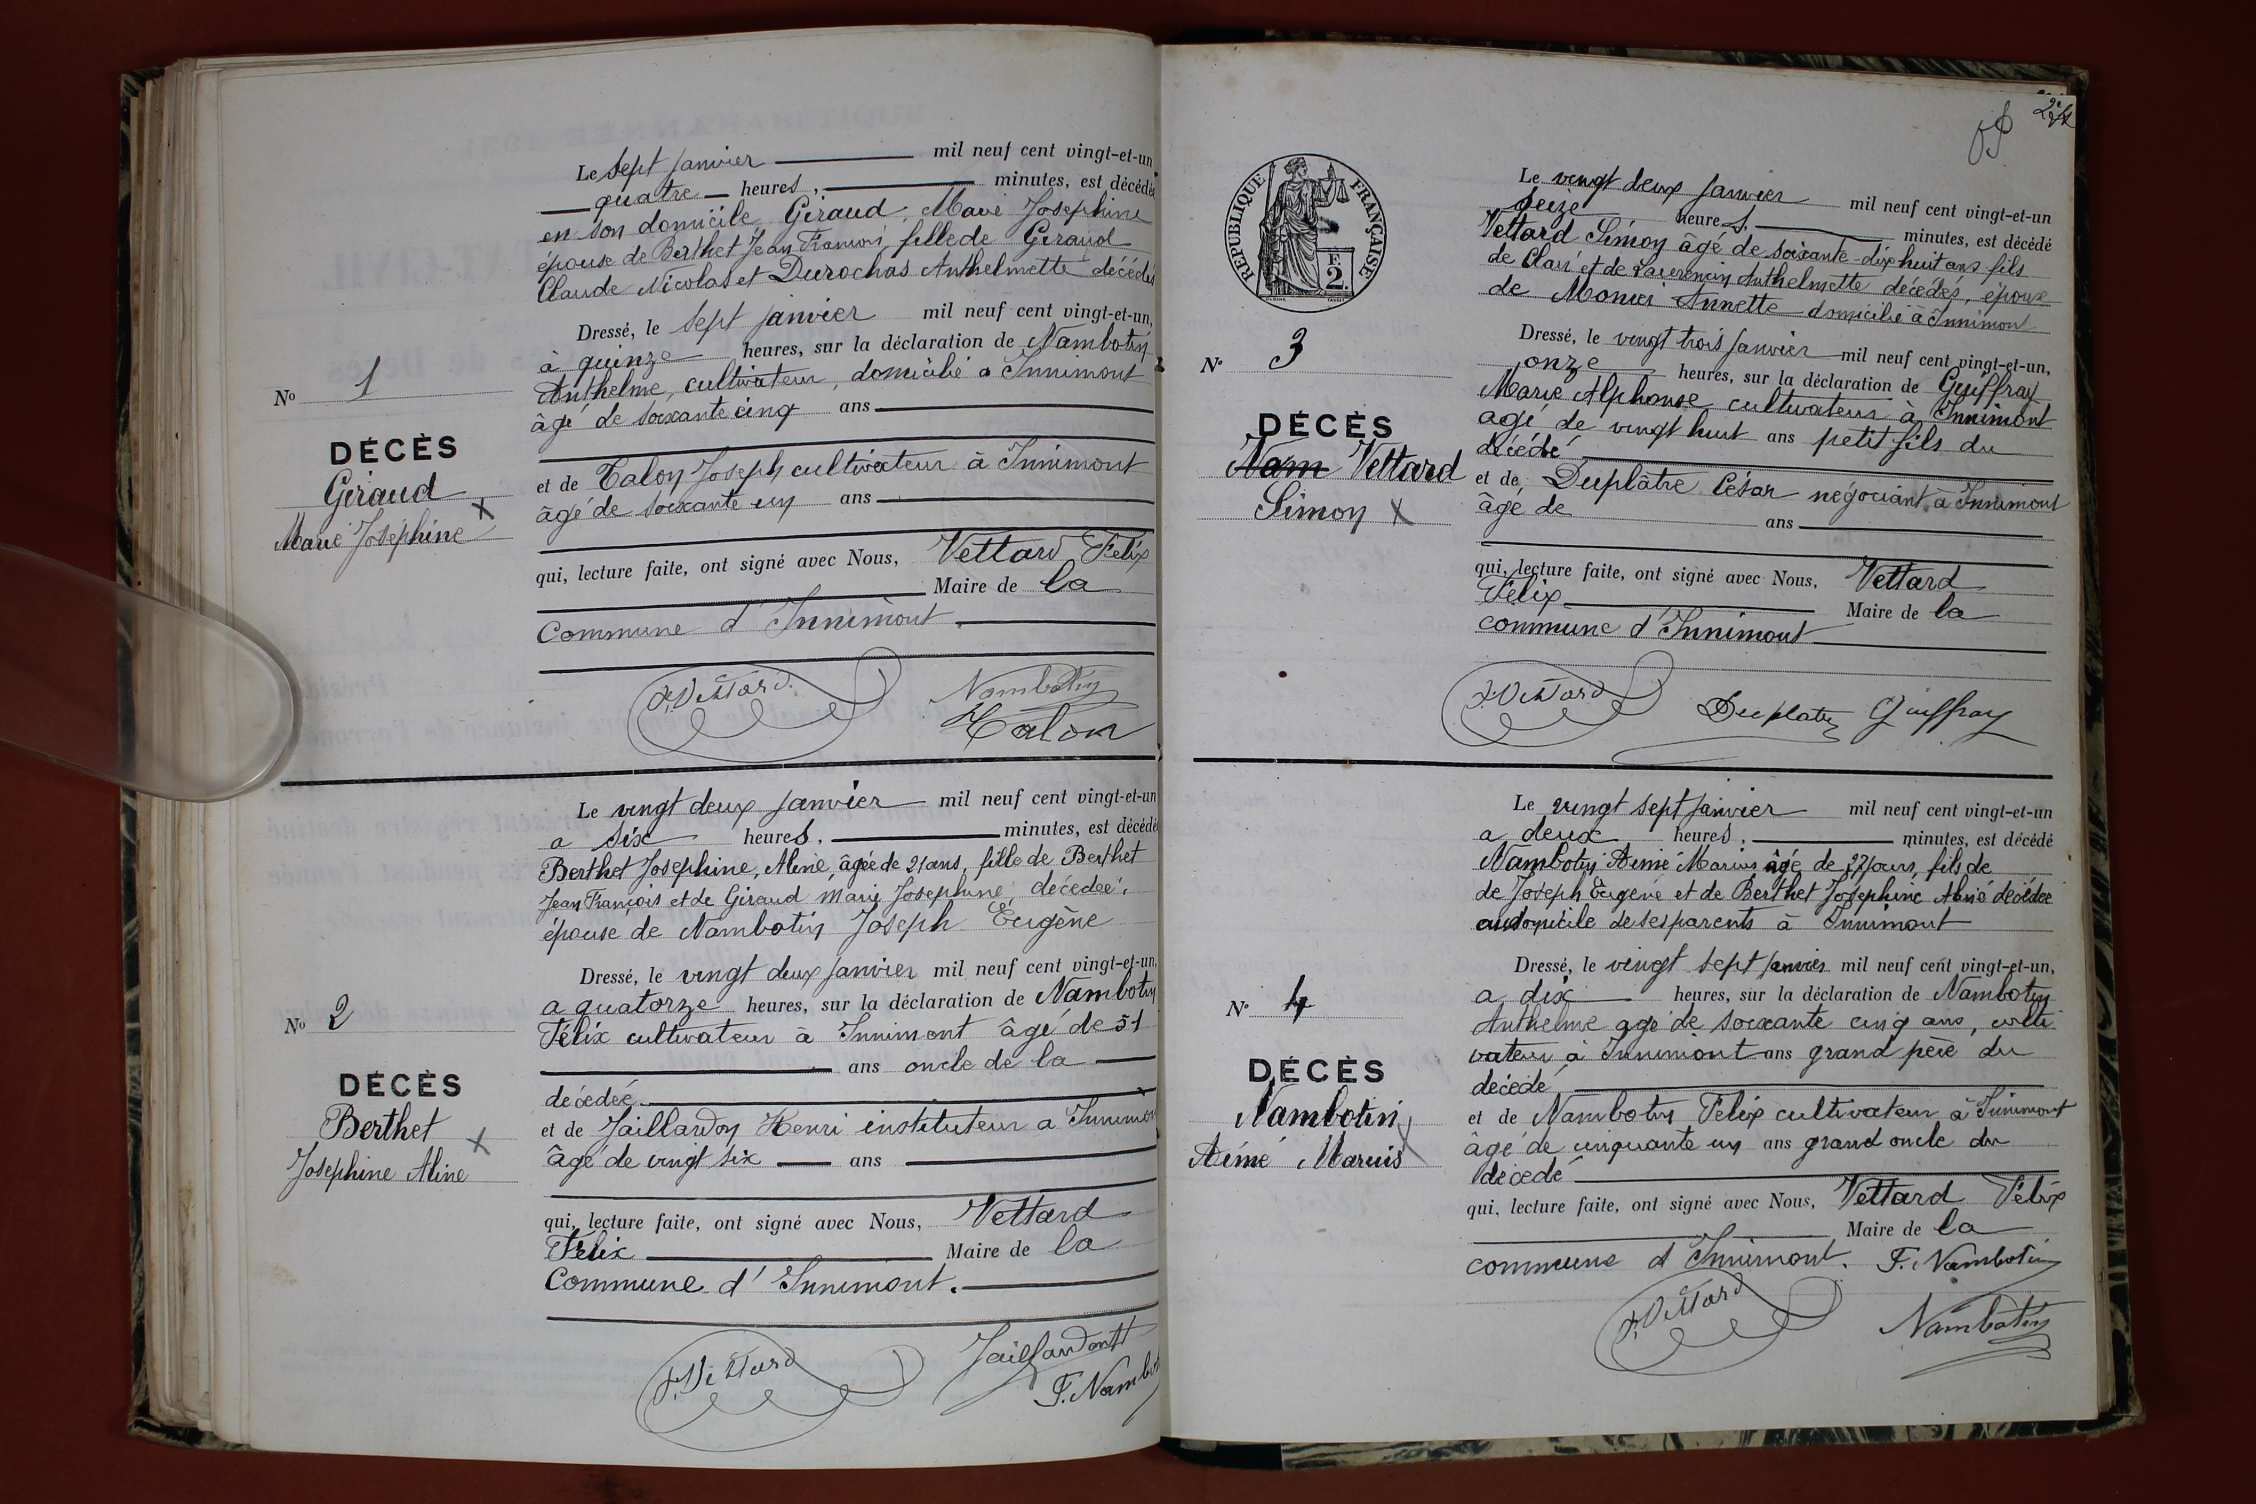 Le sept janvier mil neuf cent vingt-et-un
quatre heures, minutes, est décédée
en son domicile, Giraud, Marie Josephine
épouse de Berthet Jean François, fille de Giraud
Claude Nicolas et Durochas Anthelmette décédés
Dressé, le sept janvier mil neuf cent vingt-et-un,
à quinze heures, sur la déclaration de Nambotin
Anthelme, cultivateur, domicilié à Innimont
âgé de soixante cinq ans
et de Talon Joseph, cultivateur à Innimont
âgé de soixante un ans
qui, lecture faite, ont signé avec Nous, Vettard Félix
Maire de la
commune d'Innimont.
No 1
DÉCÈS
Giraud
Marie Joséphine
F. Vettard
Nambotin
Talon
Le vingt deux janvier mil neuf cent vingt-et-un
a six heures, minutes, est décédé
Berthet Josephine, Aline, âgée de 21 ans, fille de Berthet
Jean François et de Giraud Marie Josephine, décédée,
épouse de Nambotin Joseph Eugène
Dressé, le vingt deux janvier mil neuf cent vingt-et-un,
a quatorze heures, sur la déclaration de Nambotin
Félix cultivateur à Innimont âgé de 51
ans oncle de la
décédée
et de Jaillardon Henri instituteur a Innimon
âgé de vingt six ans
qui, lecture faite, ont signé avec Nous, Vettard
Félix Maire de la
Commune d'Innimont.
No 2
DÉCÈS
Berthet
Josephine Aline
F. Vettard
Jaillardon
F. Nambot
RÉPUBLIQUE FRANÇAISE
2
Le vingt deux janvier mil neuf cent vingt-et-un
seize heures, minutes, est décédé
Vettard Simon âgé de soixante-dix huit ans fils
de et de Anthelmette décédés, époux
de Annette domicilié à Innimont
Dressé, le vingt trois janvier mil neuf cent vingt-et-un,
onze heures, sur la déclaration de Guiffray
Marie Alphonse cultivateur à Innimont
agé de vingt huit ans petit fils du
décédé
et de Duplâtre César négociant à Innimont
âgé de ans
qui, lecture faite, ont signé avec Nous, Vettard
Félix Maire de la
commune d'Innimont
No 3
DÉCÈS
Nam Vettard
Simon
F. Vettard
Duplatre Guiffray
Le vingt sept janvier mil neuf cent vingt-et-un
a deux heures, minutes, est décédé
Nambotin Aimé Marius âgé de 27 jours, fils de
de Joseph Eugène et de Berthet Josephine Aline décédée
au domicile de ses parents à Innimont
Dressé, le vingt sept janvier mil neuf cent vingt-et-un,
a dix heures, sur la déclaration de Nambotin
Anthelme agé de soixante cinq ans, culti
vateur à Innimont ans grand père du
décédé
et de Nambotin Félix cultivateur à Innimont
âgé de cinquante un ans grand oncle du
décédé
qui, lecture faite, ont signé avec Nous, Vettard Félix
Maire de la
commune d'Innimont.
No 4
DÉCÈS
Nambotin
Aimé Marius
F. Nambotin
F. Vettard
Nambotin